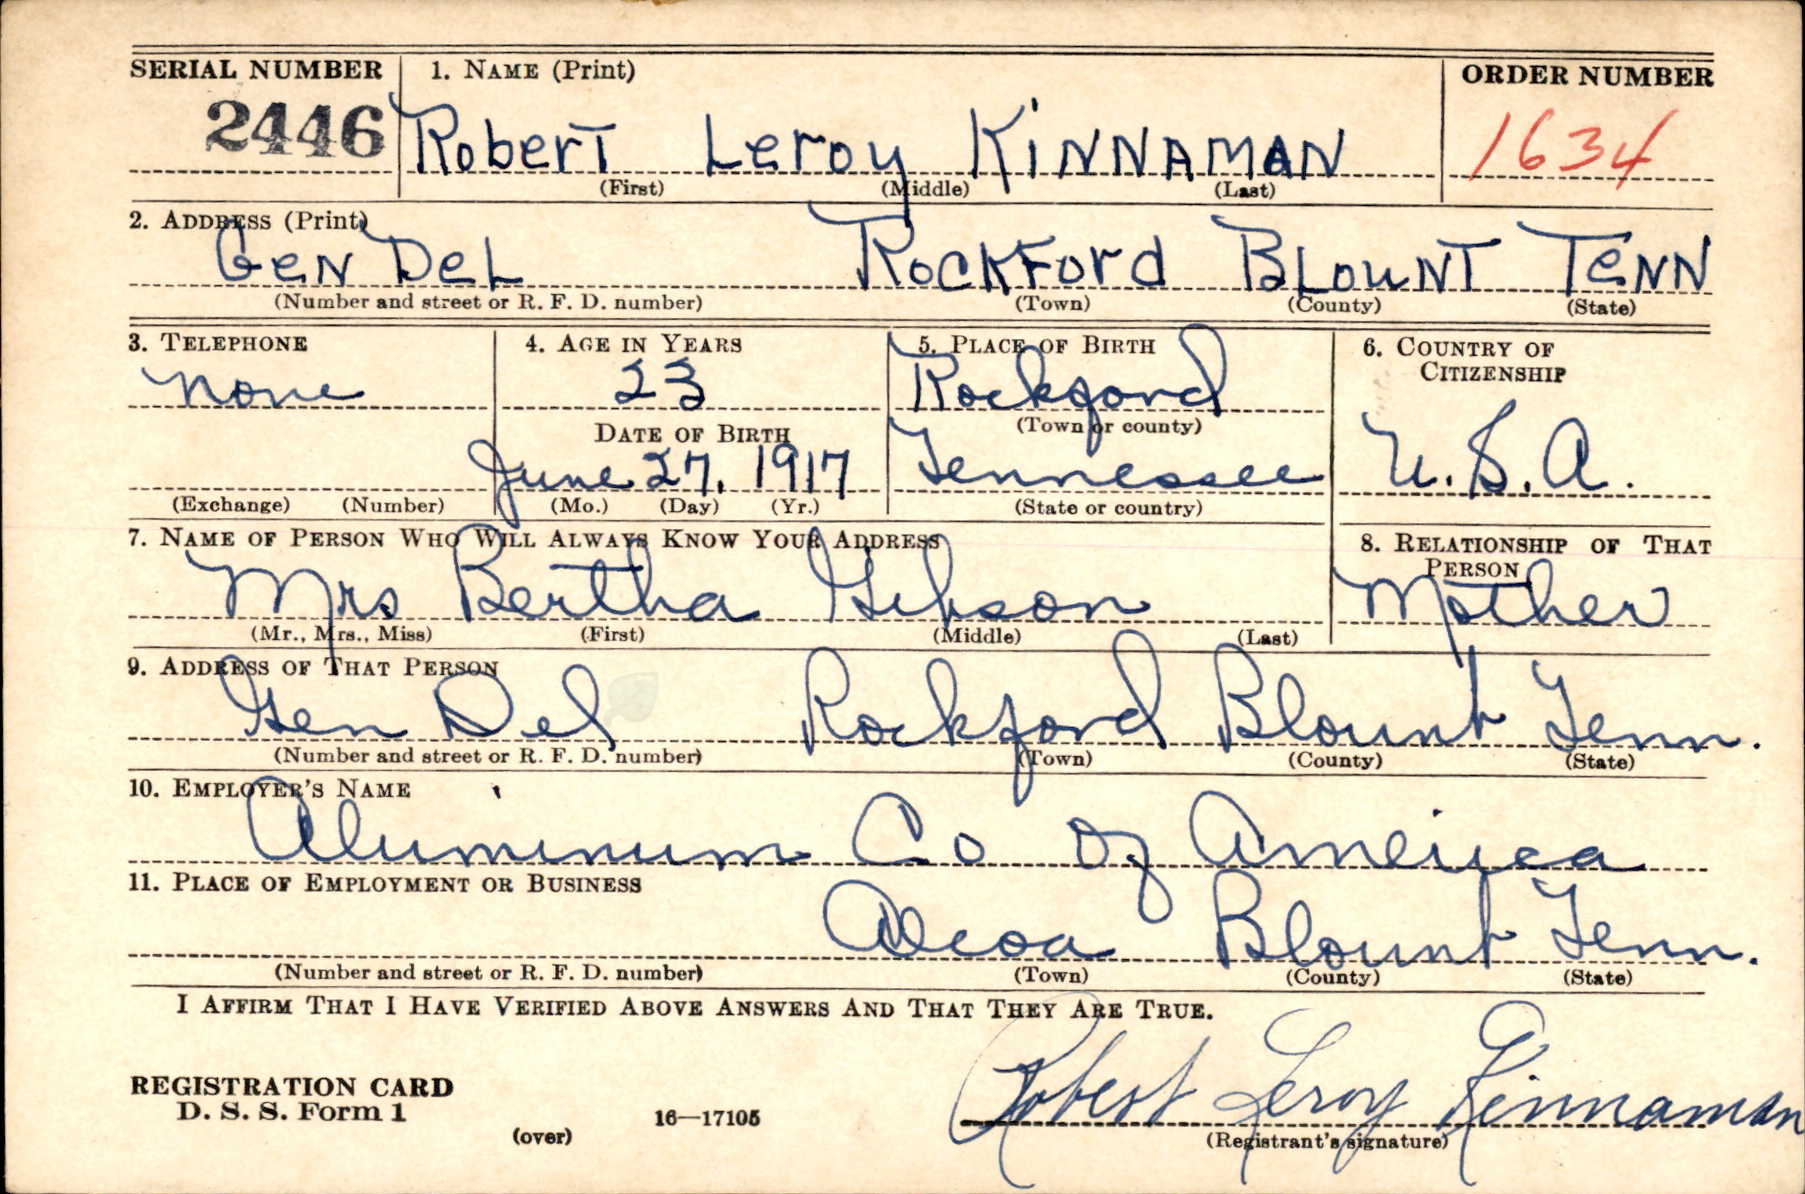 SERIAL NUMBER 1. NAME (Print) ORDER NUMBER
2446 Robert Leroy KINNAMAN 1634
(First) (Middle) (Last)
2. ADDRESS (Print)
Gen Del Rockford Blount Tenn
(Number and street or R. F. D. number) (Town) (County) (State)
3. TELEPHONE 4. AGE IN YEARS 5. PLACE OF BIRTH 6. COUNTRY OF CITIZENSHIP
none 23 Rockford
DATE OF BIRTH (Town or county)
June 27, 1917 Tennessee U.S.A.
(Exchange) (Number) (Mo.) (Day) (Yr.) (State or country)
7. NAME OF PERSON WHO WILL ALWAYS KNOW YOUR ADDRESS 8. RELATIONSHIP OF THAT PERSON
Mrs Bertha Gibson Mother
(Mr., Mrs., Miss) (First) (Middle) (Last)
9. ADDRESS OF THAT PERSON
Gen Del Rockford Blount Tenn.
(Number and street or R. F. D. number) (Town) (County) (State)
10. EMPLOYER'S NAME
Aluminum Co of America
11. PLACE OF EMPLOYMENT OR BUSINESS
Alcoa Blount Tenn.
(Number and street or R. F. D. number) (Town) (County) (State)
I AFFIRM THAT I HAVE VERIFIED ABOVE ANSWERS AND THAT THEY ARE TRUE.
Robert Leroy Kinnaman
REGISTRATION CARD
D. S. S. Form 1
(over) 16—17105 (Registrant's signature)